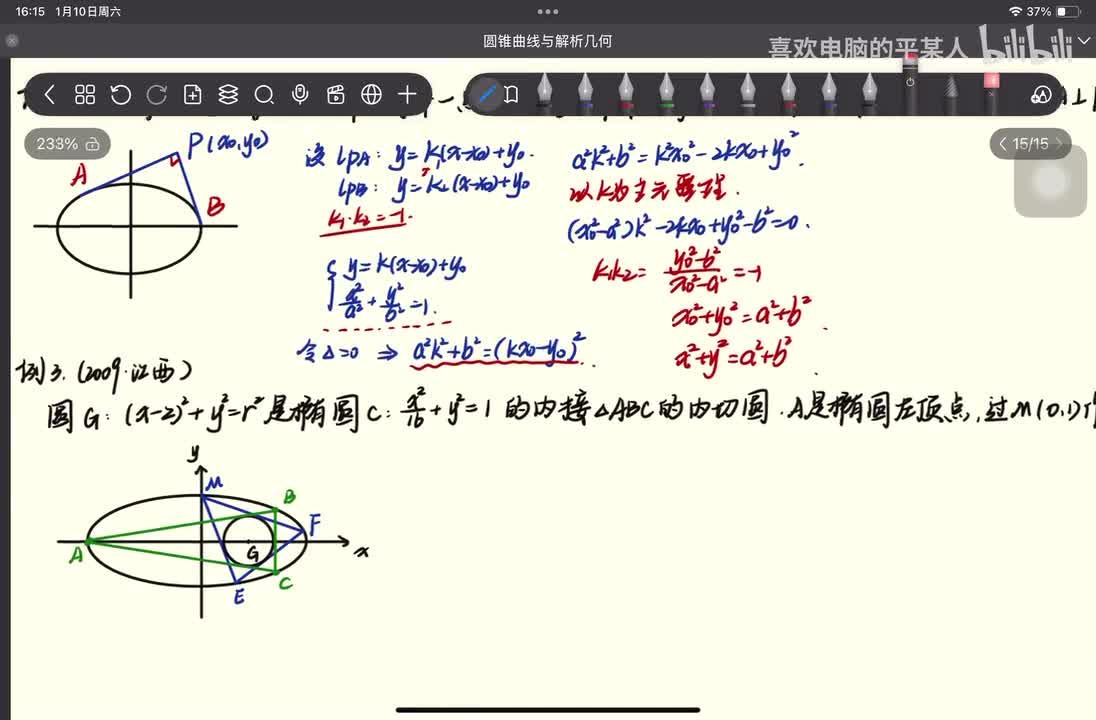 16:15 1月10日周六
37%
圆锥曲线与解析几何
喜欢电脑的平某人 bilibili
233%
15/15
P(x₀,y₀)
A
B
设 lPA: y=k₁(x-x₀)+y₀.
lPB: y=k₂(x-x₀)+y₀
k₁·k₂=-1.
{ y=k(x-x₀)+y₀
x²/a²+y²/b²=1.
令△=0 ⇒ a²k²+b²=(kx₀-y₀)².
a²k²+b²=k²x₀²-2kx₀+y₀².
以k为主元整理.
(x₀²-a²)k²-2kx₀+y₀²-b²=0.
k₁k₂=(y₀²-b²)/(x₀²-a²)=-1
x₀²+y₀²=a²+b².
x²+y²=a²+b².
例3.(2009·江西)
圆G:(x-2)²+y²=r²是椭圆C:x²/16+y²=1的内接△ABC的内切圆.A是椭圆左顶点,过M(0,1)作
y
M
B
F
A
G
x
C
E